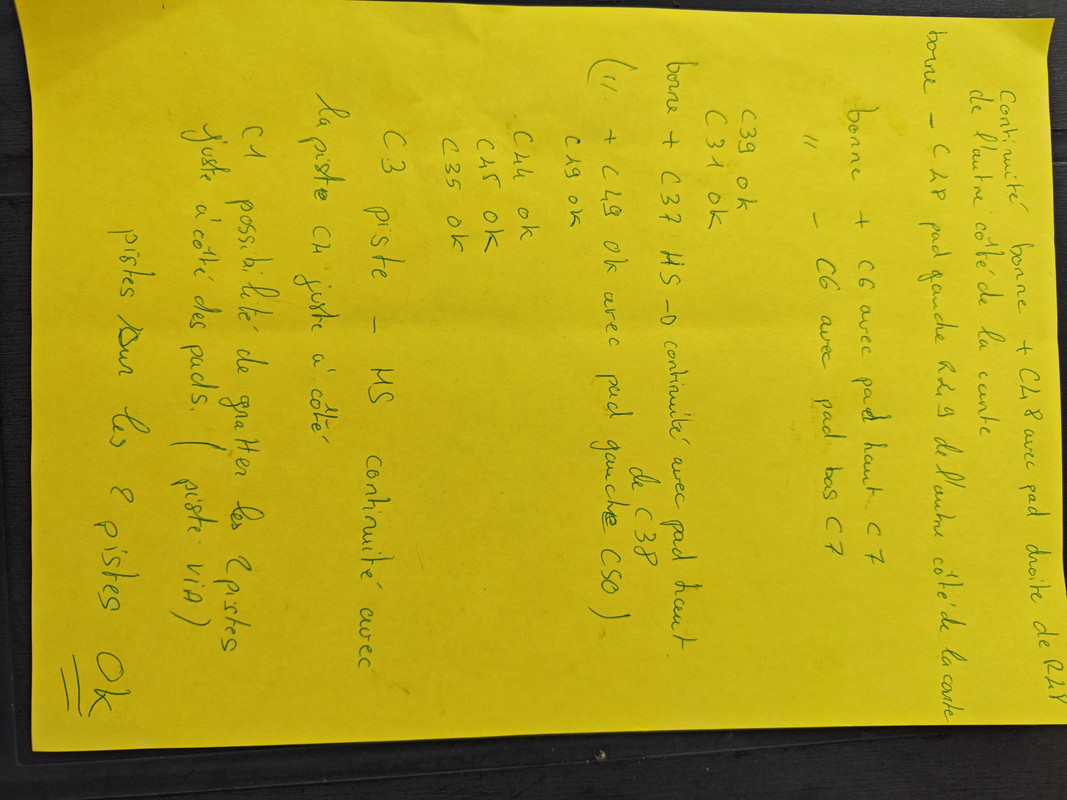 Continuité borne + C48 avec pad droite de R48
de l'autre côté de la carte
borne - C48 pad gauche R49 de l'autre côté de la carte
borne + C6 avec pad haut C7
" - C6 avec pad bas C7
C39 ok
C31 ok
borne + C37 HS → continuité avec pad haut
de C38
( " + C49 ok avec pad gauche C50 )
C49 ok
C44 ok
C45 ok
C35 ok
C3 piste - HS continuité avec
la piste C4 juste à côté
C1 possibilité de gratter les 2 pistes
juste à côté des pads. ( piste VIA )
pistes sur les 2 pistes OK